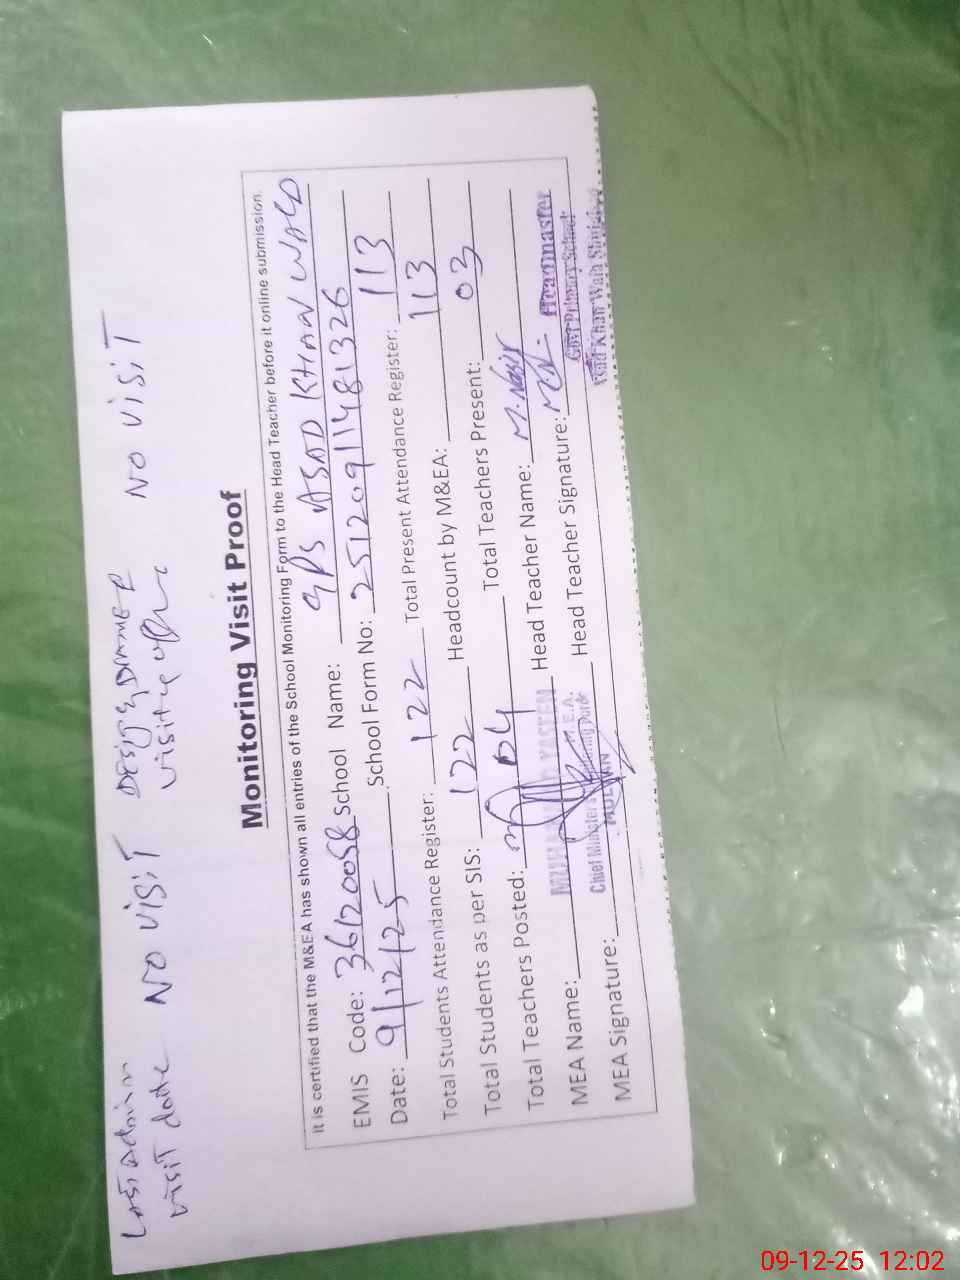 Last admin
visit date NO VISIT DESIG & DNAME P NO VISIT
visiting officer
Monitoring Visit Proof
It is certified that the M&EA has shown all entries of the School Monitoring Form to the Head Teacher before it online submission.
EMIS Code: 36120058 School Name: GPS ASAD KHAN WALA
Date: 9/12/25 School Form No: 25120911481326
Total Students Attendance Register: 122 Total Present Attendance Register: 113
Total Students as per SIS: 122 Headcount by M&EA: 113
Total Teachers Posted: 04 Total Teachers Present: 03
MEA Name: MUHAMMAD YASEEN Head Teacher Name: M. Nasir
MEA Signature: Head Teacher Signature:
M.E.A.
MULTAN
Headmaster
Govt Primary School
Asad Khan Wala
09-12-25 12:02